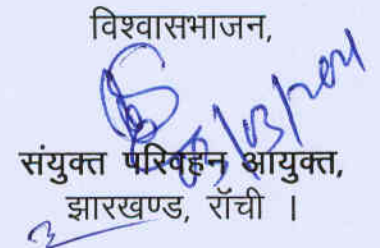 विश्वासभाजन,
संयुक्त परिवहन आयुक्त,
झारखण्ड, राँची ।